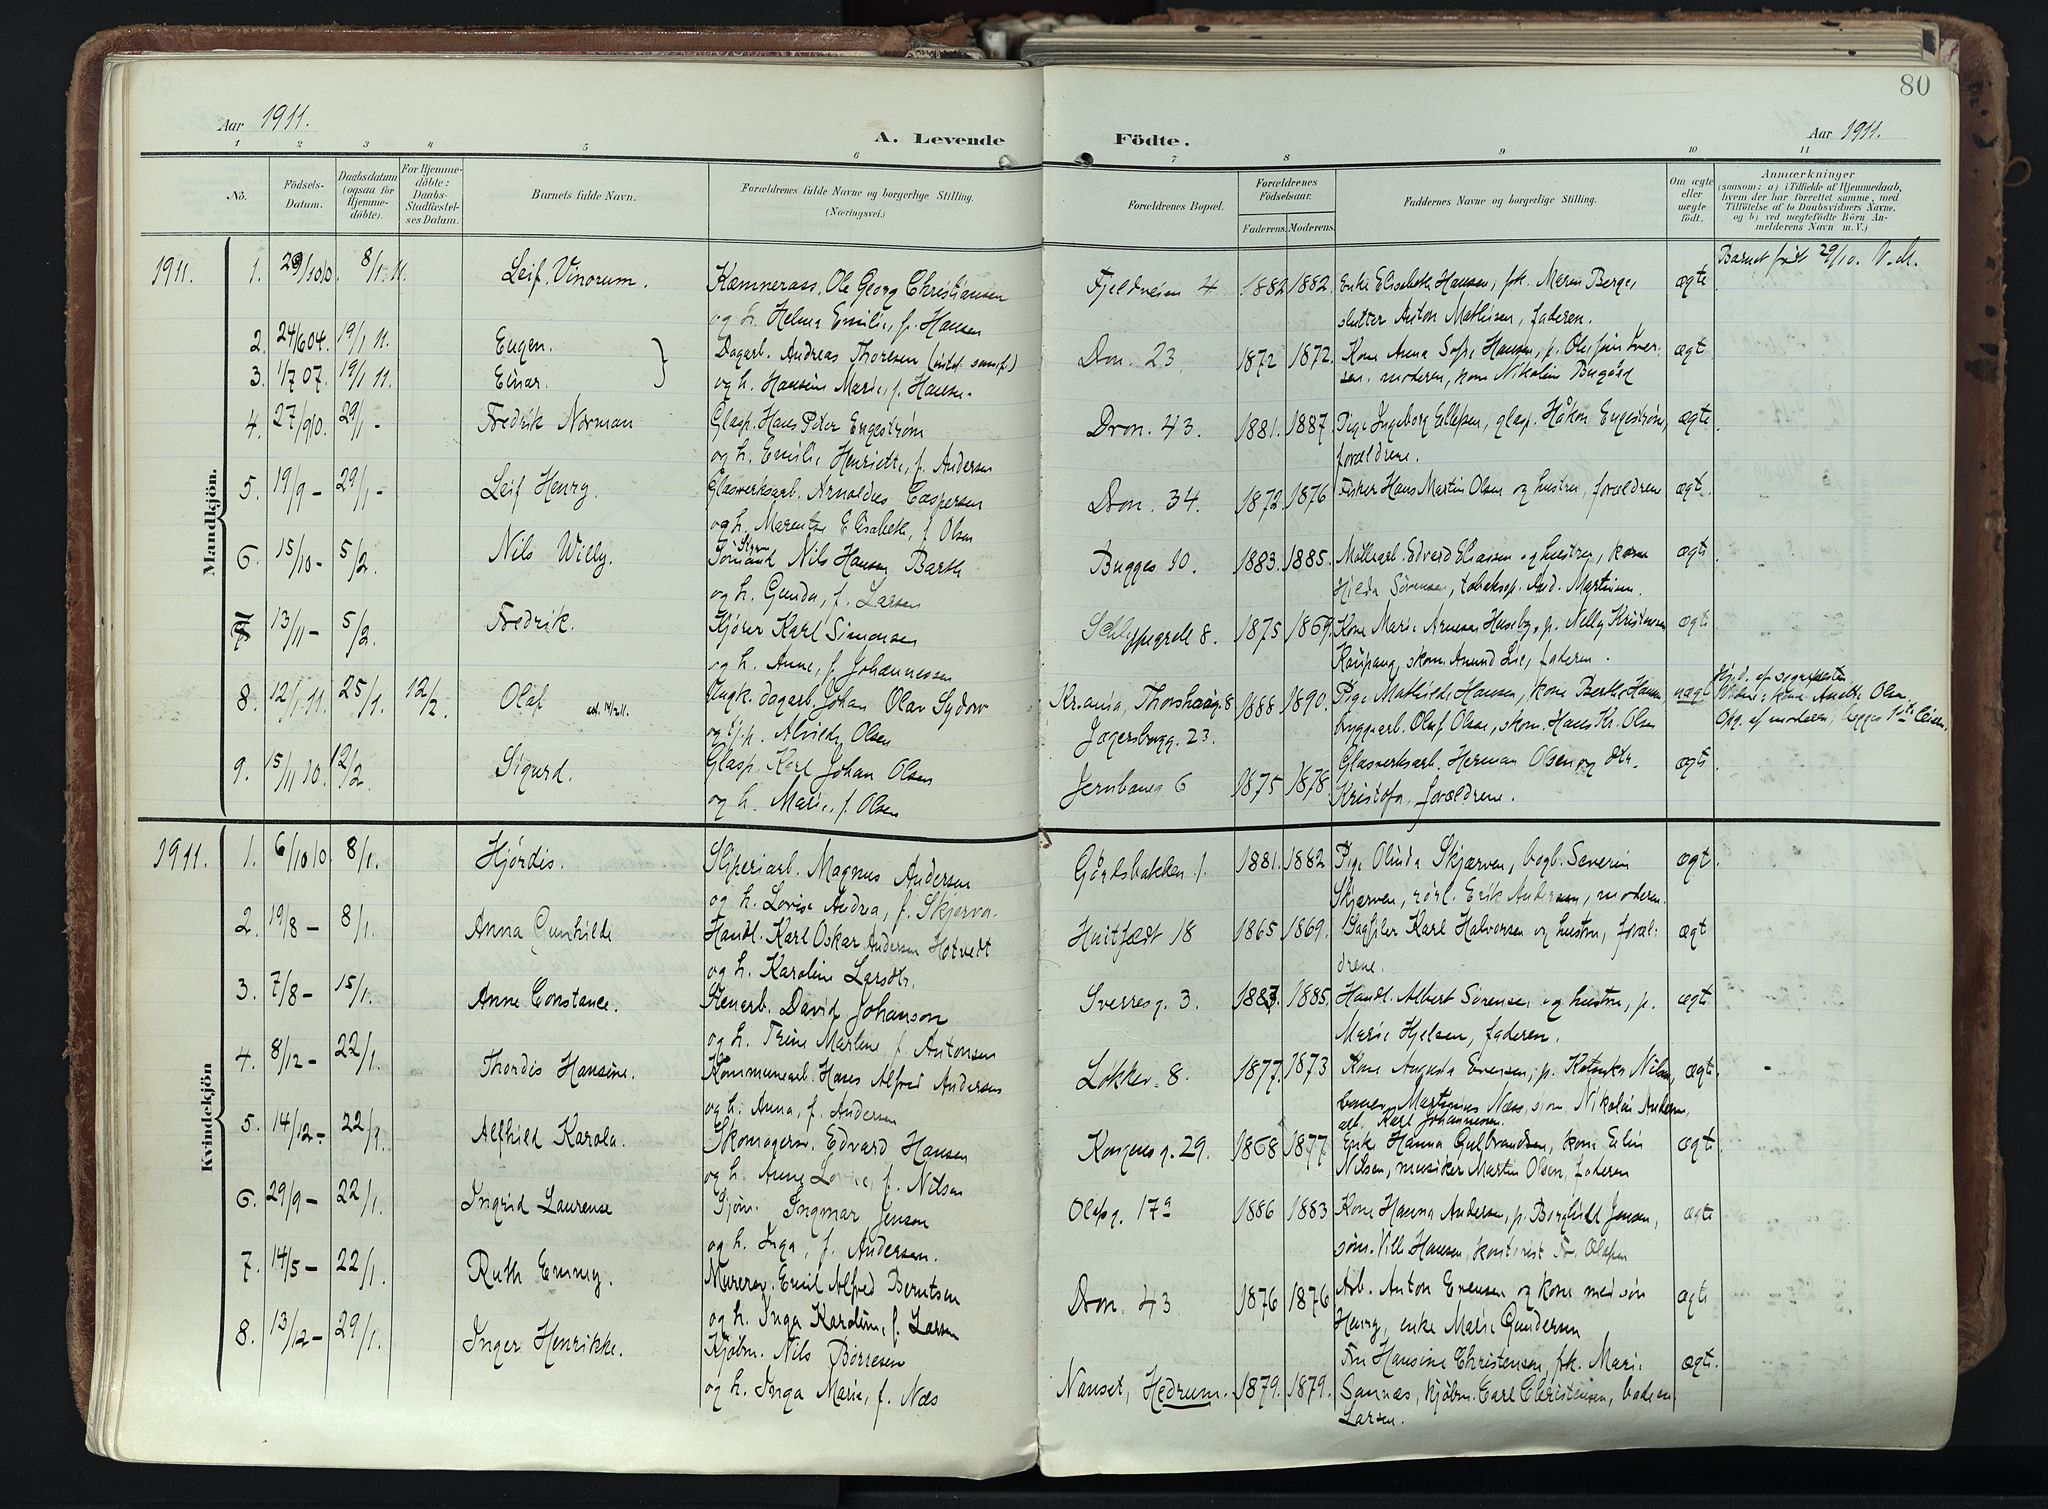 80
Aar 1911.
A. Levende Födte.
Aar 1911.
1 2 3 4 5 6 7 8 9 10 11
No.
Födsels-Datum.
Daabsdatum (ogsaa for Hjemme-döbte).
For Hjemme-döbte: Daabs-Stadfæstel-ses Datum.
Barnets fulde Navn.
Forældrenes fulde Navne og borgerlige Stilling.
(Næringsvei.)
Forældrenes Bopæl.
Forældrenes Födselsaar.
Faderens. Moderens.
Faddernes Navne og borgerlige Stilling.
Om ægte eller uægte födt.
Anmærkninger
(saasom: a) i Tilfælde af Hjemmedaab, hvem der har forrettet samme, med Tilföielse af to Daabsvidners Navne, og b) ved uægtefödte Börn An-melderens Navn m. V.)
Mandkjön.
1911. 1. 29/10 10. 8/1. 11. Leif Vinorum. Kæmnerass. Ole Georg Christiansen Fjeldveien 4 1882 1882. Enke Elisabeth Hansen, frk. Maren Berge, ægte Barnet født 29/10.
og h. Helma Emilie, f. Hansen slutter Anton Mathisen, faderen.
2. 24/6 04. 19/1 11. Eugen. Dagarb. Andreas Thoresen Dron. 23. 1872 1872. Kone Anna Sofie Hansen, ægt
3. 1/7 07. 19/1 11. Einar. og h. Hansine Marie, f. Hansen. moderen, kone Nikoline
4. 27/9 10. 29/1 - Fredrik Norman Glasp. Hans Peter Engestrøm Dron. 43. 1881. 1887. Pige Ingeborg Ellefsen, glasp. Håkon Engestrøm, ægte
og h. Emilie Henriette, f. Andersen forældrene.
5. 19/9 - 29/1 - Leif Henry. Glasverksarb. Arnoldus Caspersen Dron. 34. 1872 1876 Fisker Hans Martin Olsen og hustru, forældrene ægt.
og h. Marentze Elisabeth, f. Olsen
6. 15/10 - 5/2. Nils Willy. Sömand Nils Hansen Barth Bugges 10. 1883. 1885. Möllearb. Edvard Eliassen og hustru, kone ægte
og h. Gunda, f. Larsen Hilda Sørensen, tobakssp. And. Martinsen.
7. 13/11 - 5/2. Fredrik. Kjörer Karl Simonsen Schleppegrels 8. 1875 1869. Kone Marie Arnesen Huseby, p. Nelly Kristensen ægte
og h. Anne, f. Johannessen Kaupang, skom. Amund Lie, faderen.
8. 12/1 11. 25/1. 12/2. Olaf Ungk. dagarb. Johan Olav Sydow Kr.ania, Thorshaug. 8 1888 1890. Pige Mathilde Hansen, kone Berthe Hansen uægt
og pige Alvilde Olsen Jegersborgg. 23. bryggearb. Oluf Olsen, skom. Hans Kr. Olsen
9. 5/11 10. 12/2. Sigurd. Glasp. Karl Johan Olsen Jernbaneg 6 1875 1878 Glasverksarb. Herman Olsen og dtr. ægte
og h. Marie, f. Olsen Kristofa, forældrene.
Kvindekjön
1911. 1. 6/10 10. 8/1. Hjördis. Sliperiarb. Magnus Andersen Gårdsbakken 1. 1881. 1882 Pige Olinda Skjærven, bogb. Severin ægt.
og h. Lovise Andrea, f. Skjerve. Skjærven, rörl. Erik Andersen, moderen.
2. 19/8 - 8/1. Anna Gunhilde Handl. Karl Oskar Andersen Hotvedt Huitfædt 18 1865 1869. Sagfiler Karl Halvorsen og hustru, foræl- ægt
og h. Karoline Larsdtr. drene.
3. 7/8 - 15/1. Anne Constance. Stenarb. David Johanson Sverresg. 3. 1883. 1885. Handl. Albert Sørensen og hustru, p. ægte
og h. Trine Marlene f. Antonsen Marie Hjelsen, faderen.
4. 8/12 - 22/1. Thordis Hansine. Kommunearb. Hans Alfred Andersen Løkkev. 8. 1877. 1873 Kone Augusta Evensen, p. ægte
og h. Anna, f. Andersen Martinius Næss, Nikolai Andersen,
arb. Karl Johannesen.
5. 14/12 - 22/1. Alfhild Karola. Skomagersv. Edvard Hansen Kongensg. 29. 1868 1877 Enke Hanna Gulbrandsen, kone Elin ægte
og h. Anne Lovise, f. Nilsen Nilsen, musiker Martin Olsen, faderen
6. 29/9 - 22/1. Ingrid Laurense Sjöm. Ingmar Jenson Olafsg. 17a 1886 1883 Kone Hanna Andersen, p. Borghild Jensen, ægte
og h. Inga, f. Andersen. söm. Hansen, kontorist Fr. Olafsen
7. 14/5 - 22/1. Ruth Emmy. Murersv. Emil Alfred Berntsen Dron. 43 1876 1876 Arb. Anton Evensen og kone med sön ægte
og h. Inga Karoline, f. Larsen Henry, enke Marie Gundersen
8. 13/12 - 29/1. Inger Henrikke. Kjöbm. Nils Börresen Nanset, Hedrum. 1879. 1879. Fru Hansine Christensen, frk. Marie ægte.
og h. Inga Marie, f. Næs Sannæs, kjöbm. Carl Christensen,
Larsen.